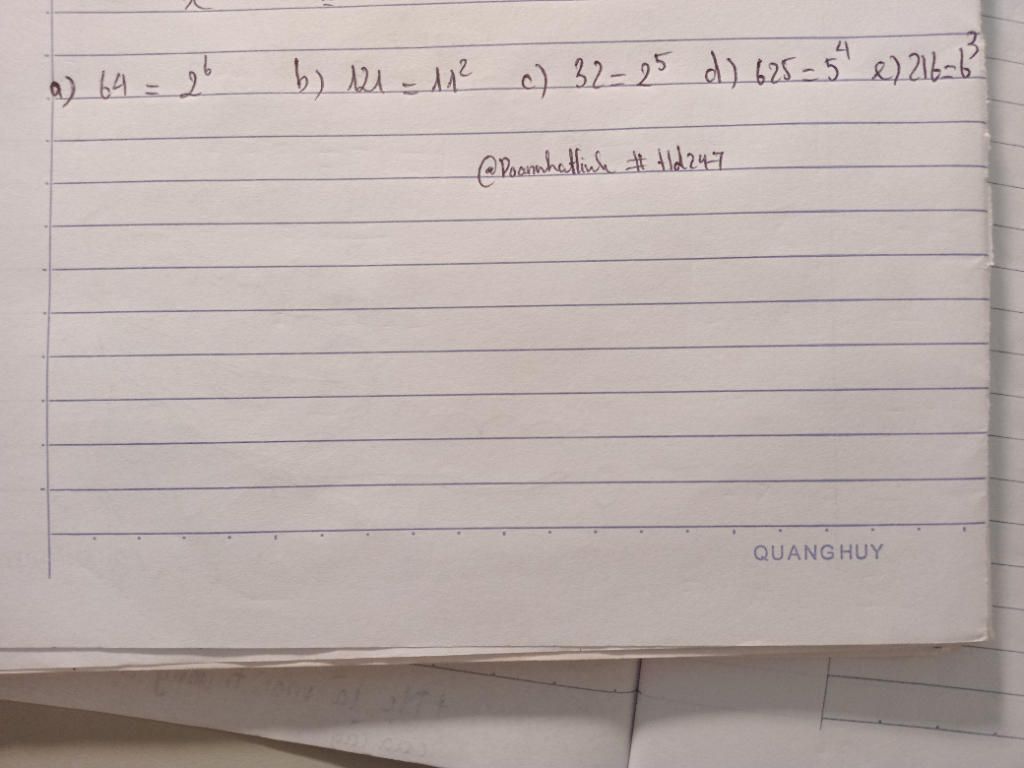 a) 64 = 2⁶ b) 121 = 11² c) 32 = 2⁵ d) 625 = 5⁴ e) 216 = 6³
@Doannhatlinh # tld247
QUANG HUY